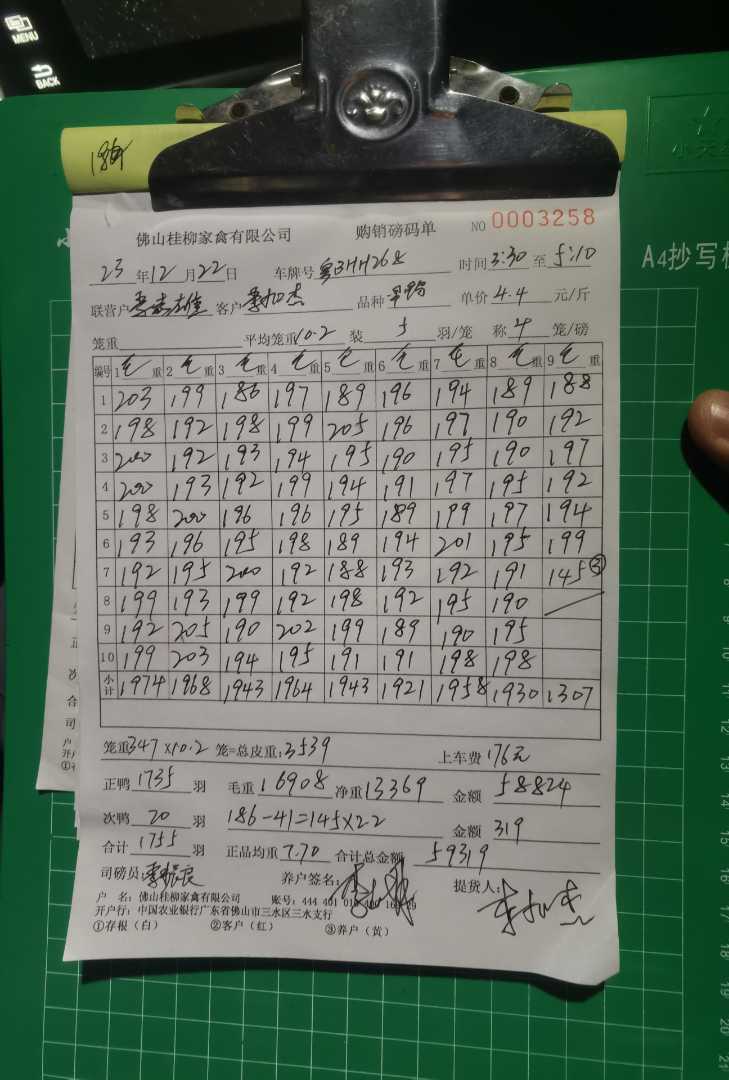 MENU
BACK
A4抄写板
佛山桂柳家禽有限公司 购销磅码单 NO 0003258
23 年 12 月 22 日 车牌号 粤BHH268 时间 3:30 至 5:10
联营户 客户 李加杰 品种 单价 4.4 元/斤
笼重 平均笼重 10.2 装 5 羽/笼 称 4 笼/磅
编号 1 毛 重 2 毛 重 3 毛 重 4 毛 重 5 毛 重 6 毛 重 7 毛 重 8 毛 重 9 毛 重
1 203 199 186 197 189 196 194 189 188
2 198 192 198 199 205 196 197 190 192
3 200 192 193 194 195 190 195 190 197
4 200 193 192 199 194 191 197 195 192
5 198 200 196 196 195 189 199 197 194
6 193 196 195 198 189 194 201 195 199
7 192 195 200 192 188 193 192 191 145 ③
8 199 193 199 192 198 192 195 190
9 192 205 190 202 199 189 190 195
10 199 203 194 195 191 191 198 198
小计 1974 1968 1943 1964 1943 1921 1958 1930 1307
笼重 347 X10.2 笼=总皮重: 3539 上车费 176元
正鸭 1735 羽 毛重 16908 净重 13369 金额 58824
次鸭 20 羽 186-41=145X2.2 金额 319
合计 1755 羽 正品均重 7.70 合计总金额 59319
司磅员: 李振良 养户签名: 提货人: 李加杰
户 名: 佛山桂柳家禽有限公司 账号: 444 401 010 400 16
开户行: 中国农业银行广东省佛山市三水区三水支行
①存根(白) ②客户(红) ③养户(黄)